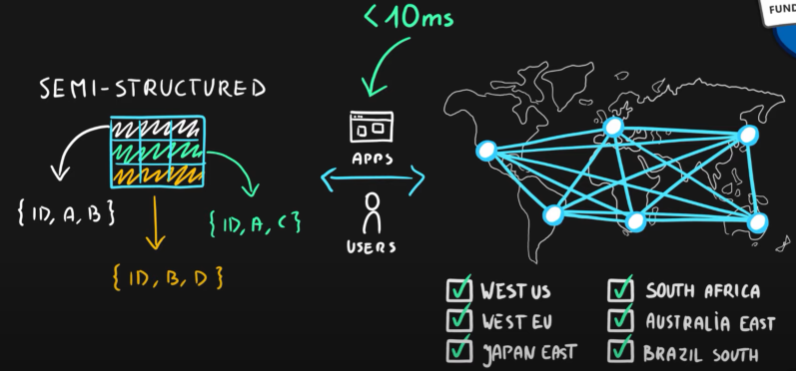 <10ms
FUND
SEMI-STRUCTURED
{ID, A, B}
{ID, A, C}
{ID, B, D}
APPS
USERS
WEST US
WEST EU
JAPAN EAST
SOUTH AFRICA
AUSTRALIA EAST
BRAZIL SOUTH